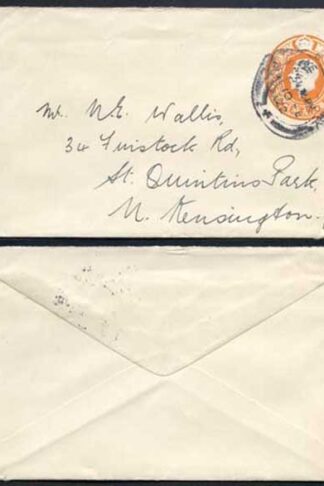 Mr. N.E. Wallis,
34 Finstock Rd,
St. Quintins Park,
N. Kensington.